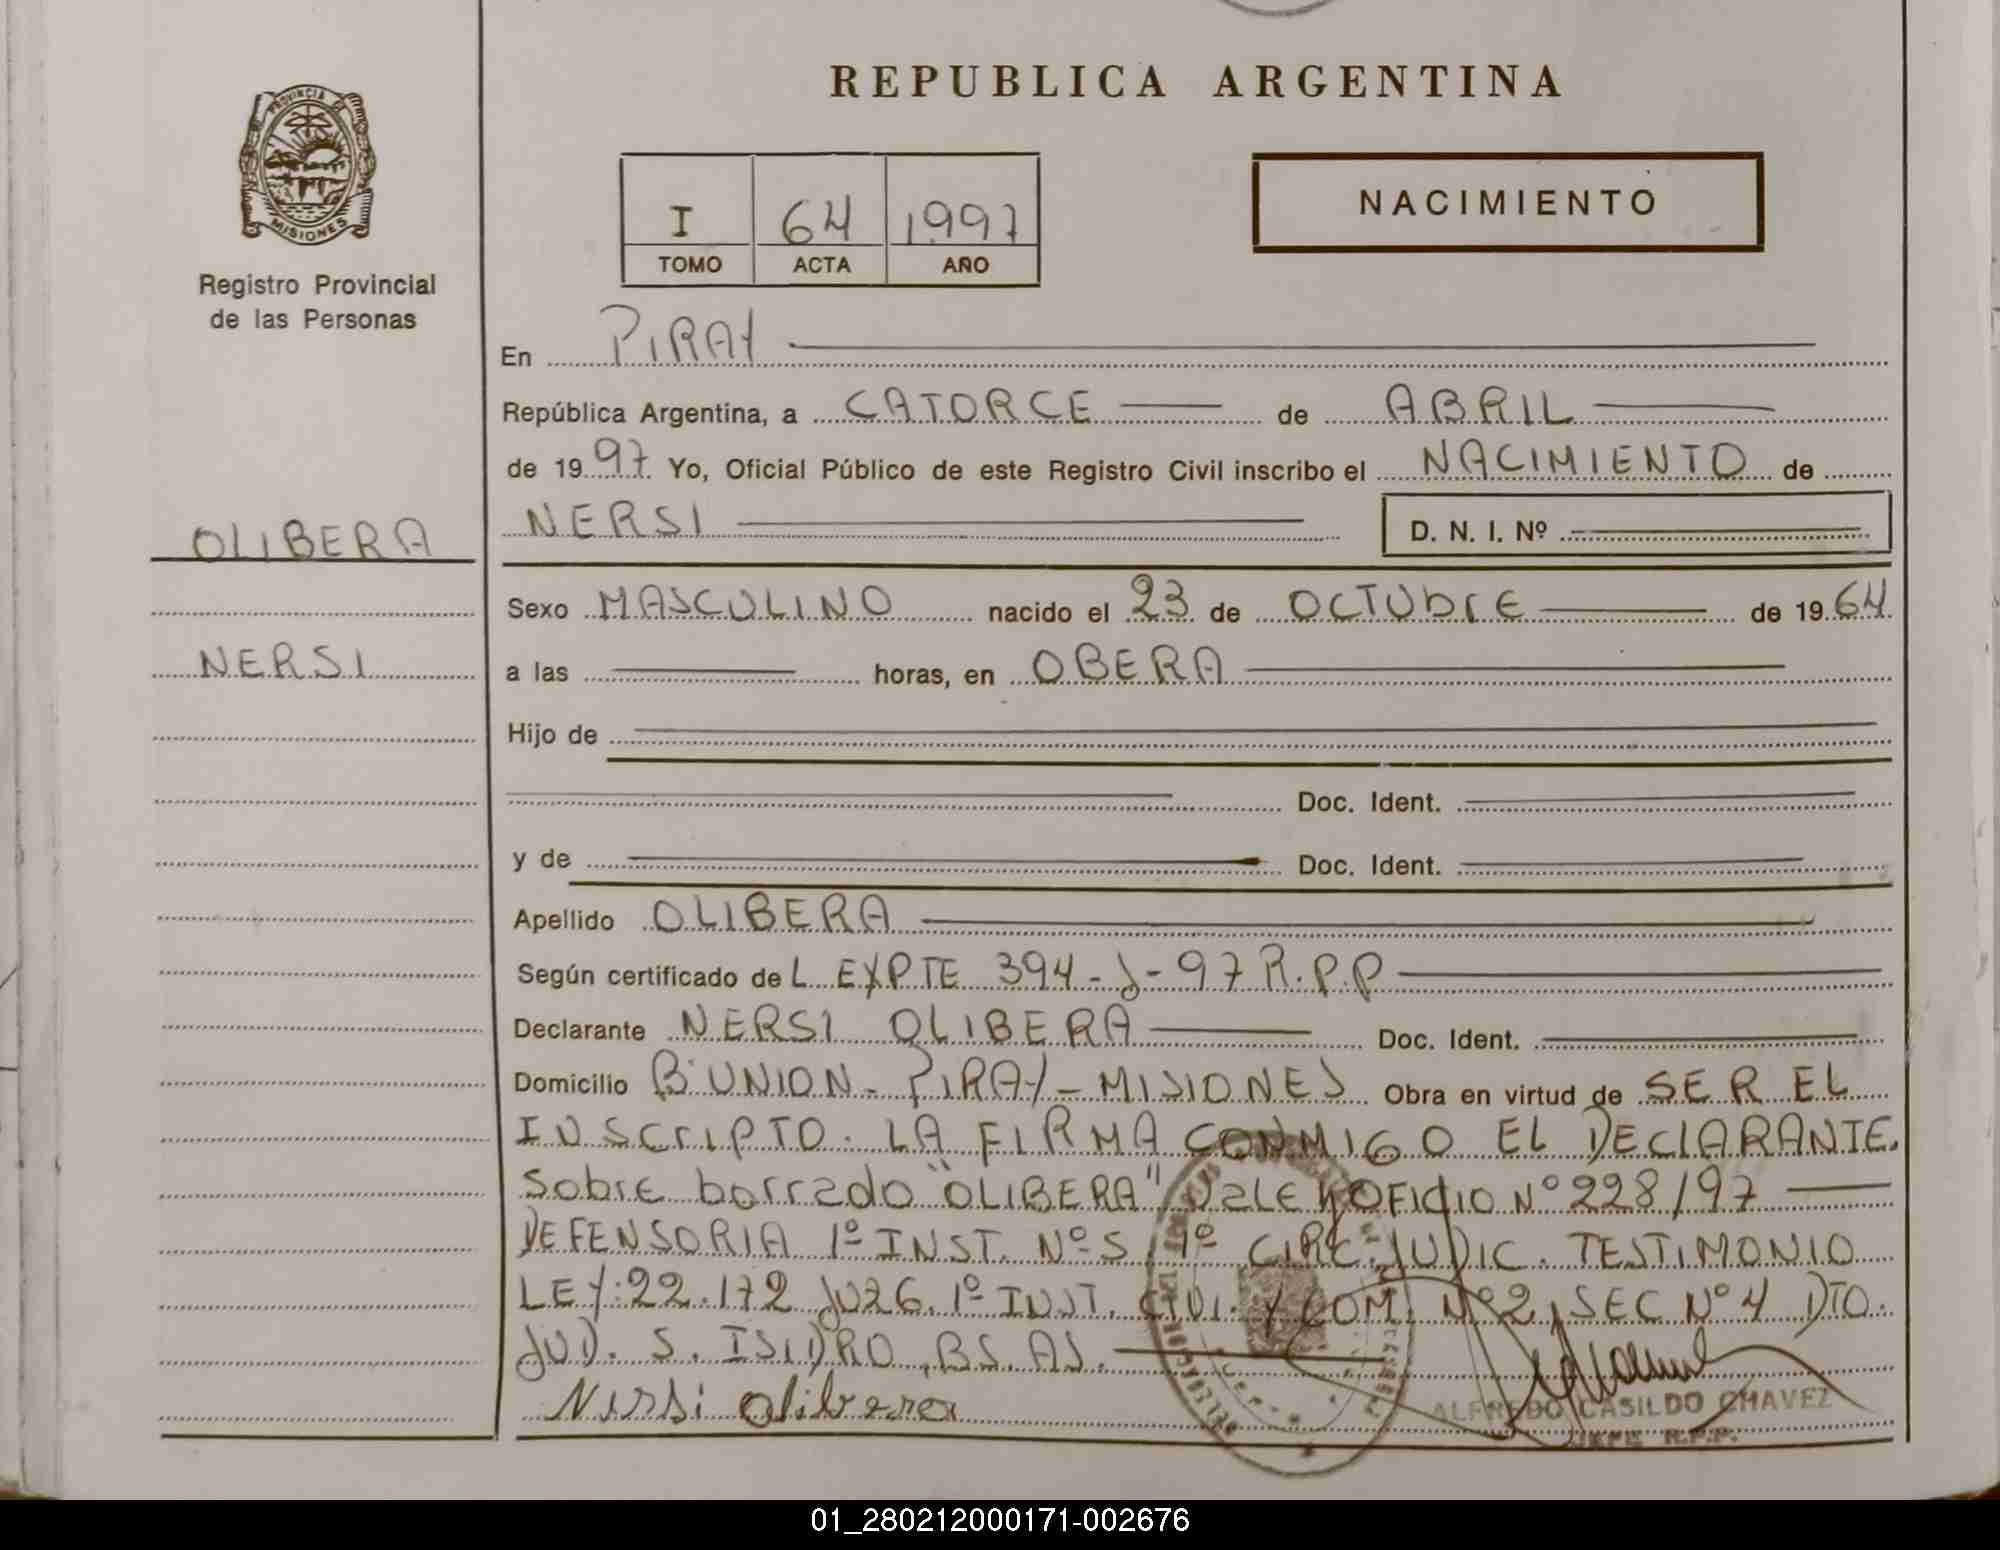 REPUBLICA ARGENTINA
PROVINCIA DE
MISIONES
Registro Provincial
de las Personas
I 64 1997
TOMO ACTA AÑO
NACIMIENTO
En PIRAY
República Argentina, a CATORCE de ABRIL
de 1997. Yo, Oficial Público de este Registro Civil inscribo el NACIMIENTO de
OLIBERA
NERSI D. N. I. Nº
Sexo MASCULINO nacido el 23 de OCTUbrE de 1964
NERSI
a las horas, en OBERA
Hijo de
Doc. Ident.
y de Doc. Ident.
Apellido OLIBERA
Según certificado de L. EXPTE 394-J-97 R.P.P
Declarante NERSI OLIBERA Doc. Ident.
Domicilio Bº UNION - PIRAY - MISIONES Obra en virtud de SER EL
INSCrIPTO. LA FIRMA CONMIGO EL DECLARANTE.
Sobre borrado "OLIBERA" VALE y OFICIO Nº 228/97
DEFENSORIA 1º INST. Nº 5, 1º CIRC. JUDIC. TESTIMONIO
LEY: 22.172 JUZG. 1º INST. CIVI. Y COM. Nº 2, SEC Nº 4 DTO.
JUD. S. ISIDRO, BS. AS.
Nersi olibera
ALFREDO CASILDO CHAVEZ
JEFE R.P.P.
01_280212000171-002676